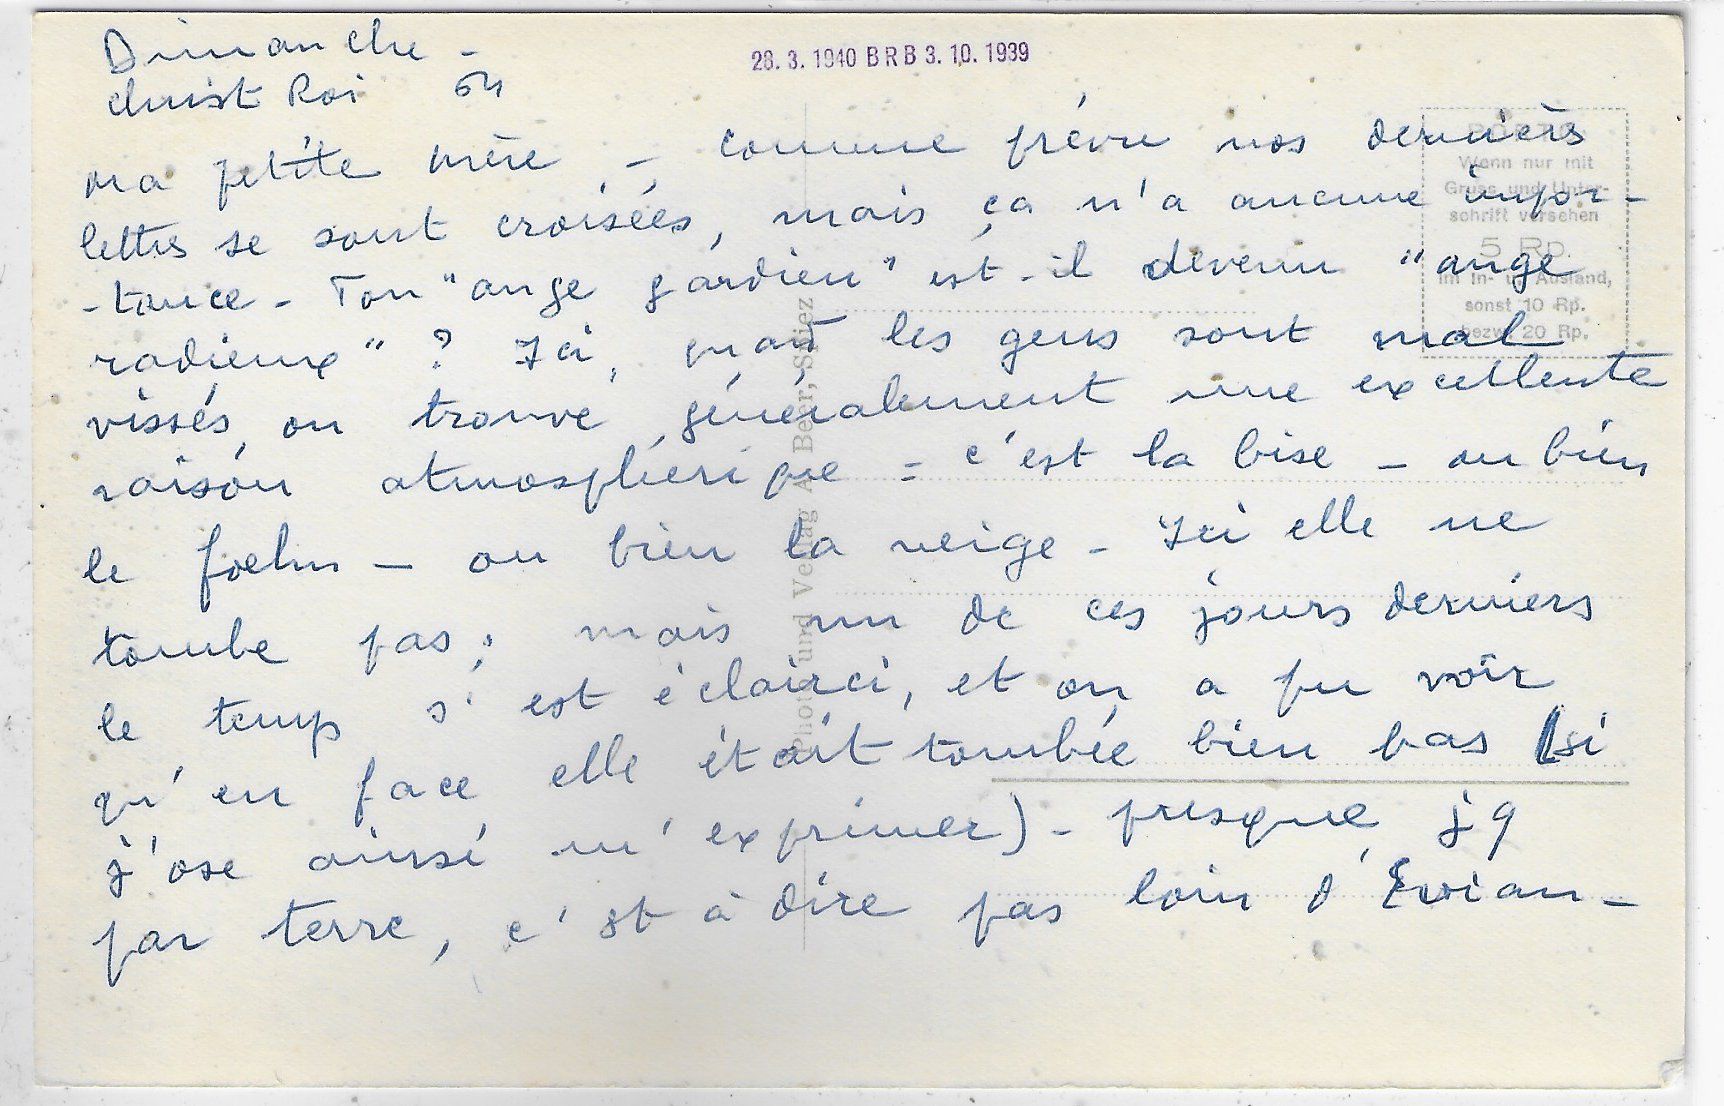 Dimanche -
Christ Roi 54
28. 3. 1940 B R B 3. 10. 1939
ma petite mère - comme prévu nos dernières
lettres se sont croisées, mais ça n'a aucune impor-
-tance - Ton "ange gardien" est-il devenu "ange
radieux" ? Ici, quand les gens sont mal
vissés, on trouve généralement une excellente
raison atmosphérique = c'est la bise - ou bien
le foehn - ou bien la neige - Ici elle ne
tombe pas ; mais un de ces jours derniers
le temps s'est éclairci, et on a pu voir
qu'en face elle était tombée bien bas (si
j'ose ainsi m'exprimer) - presque jq
par terre, c'est à dire pas loin d'Evian -
PORTO
Wenn nur mit
Gruss und Unter-
schrift versehen
5 Rp.
im In- u. Ausland,
sonst 10 Rp.
bezw. 20 Rp.
Photo und Verlag A. Beer, Spiez